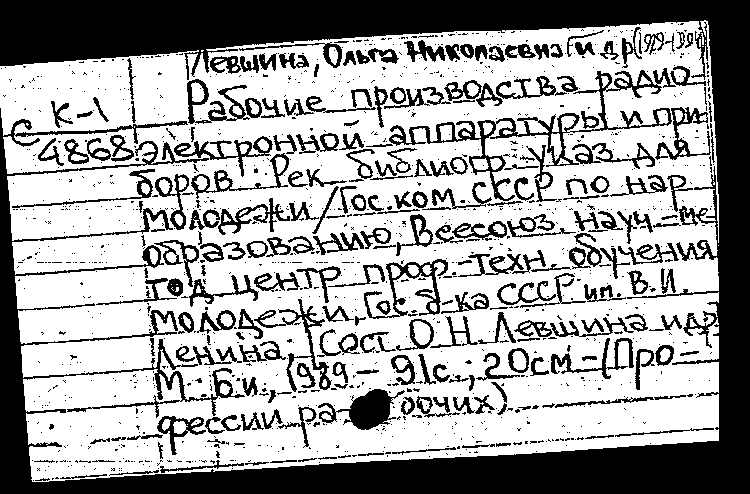 Левшина, Ольга Николаевна и др (1989-1991)
К-1
Рабочие производства радио-
С 4868 электронной аппаратуры и при-
боров : Рек библиогр. указ. для
молодежи / Гос. ком. СССР по нар
образованию, Всесоюз. науч.-ме
тод центр проф.-техн. обучения
молодежи, Гос. б-ка СССР им. В.И.
Ленина; Сост. О.Н. Левшина и др
М.: Б.и., 1989 - 91с.; 20см - (Про-
фессии рабочих)